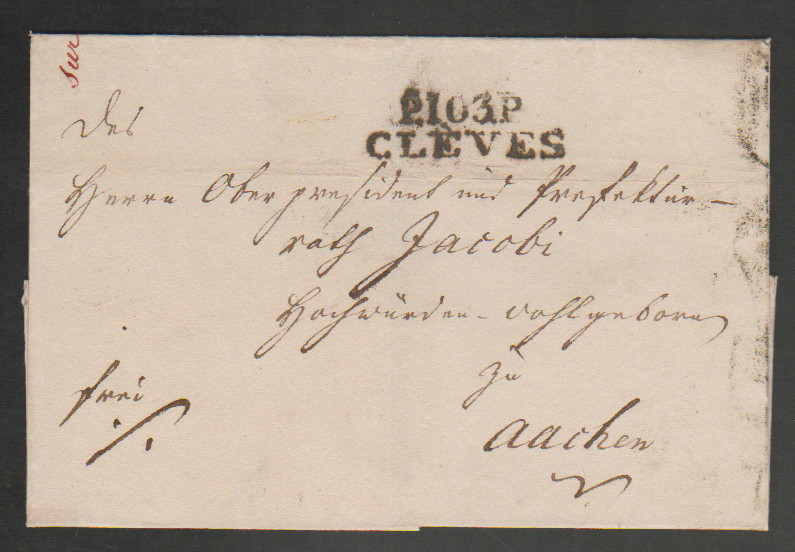 P.103.P.
CLÈVES
Des
Herrn Ober president und Prefektur-
rath Jacobi
Hochwürden-wohlgeborn
zu
Aachen
frei